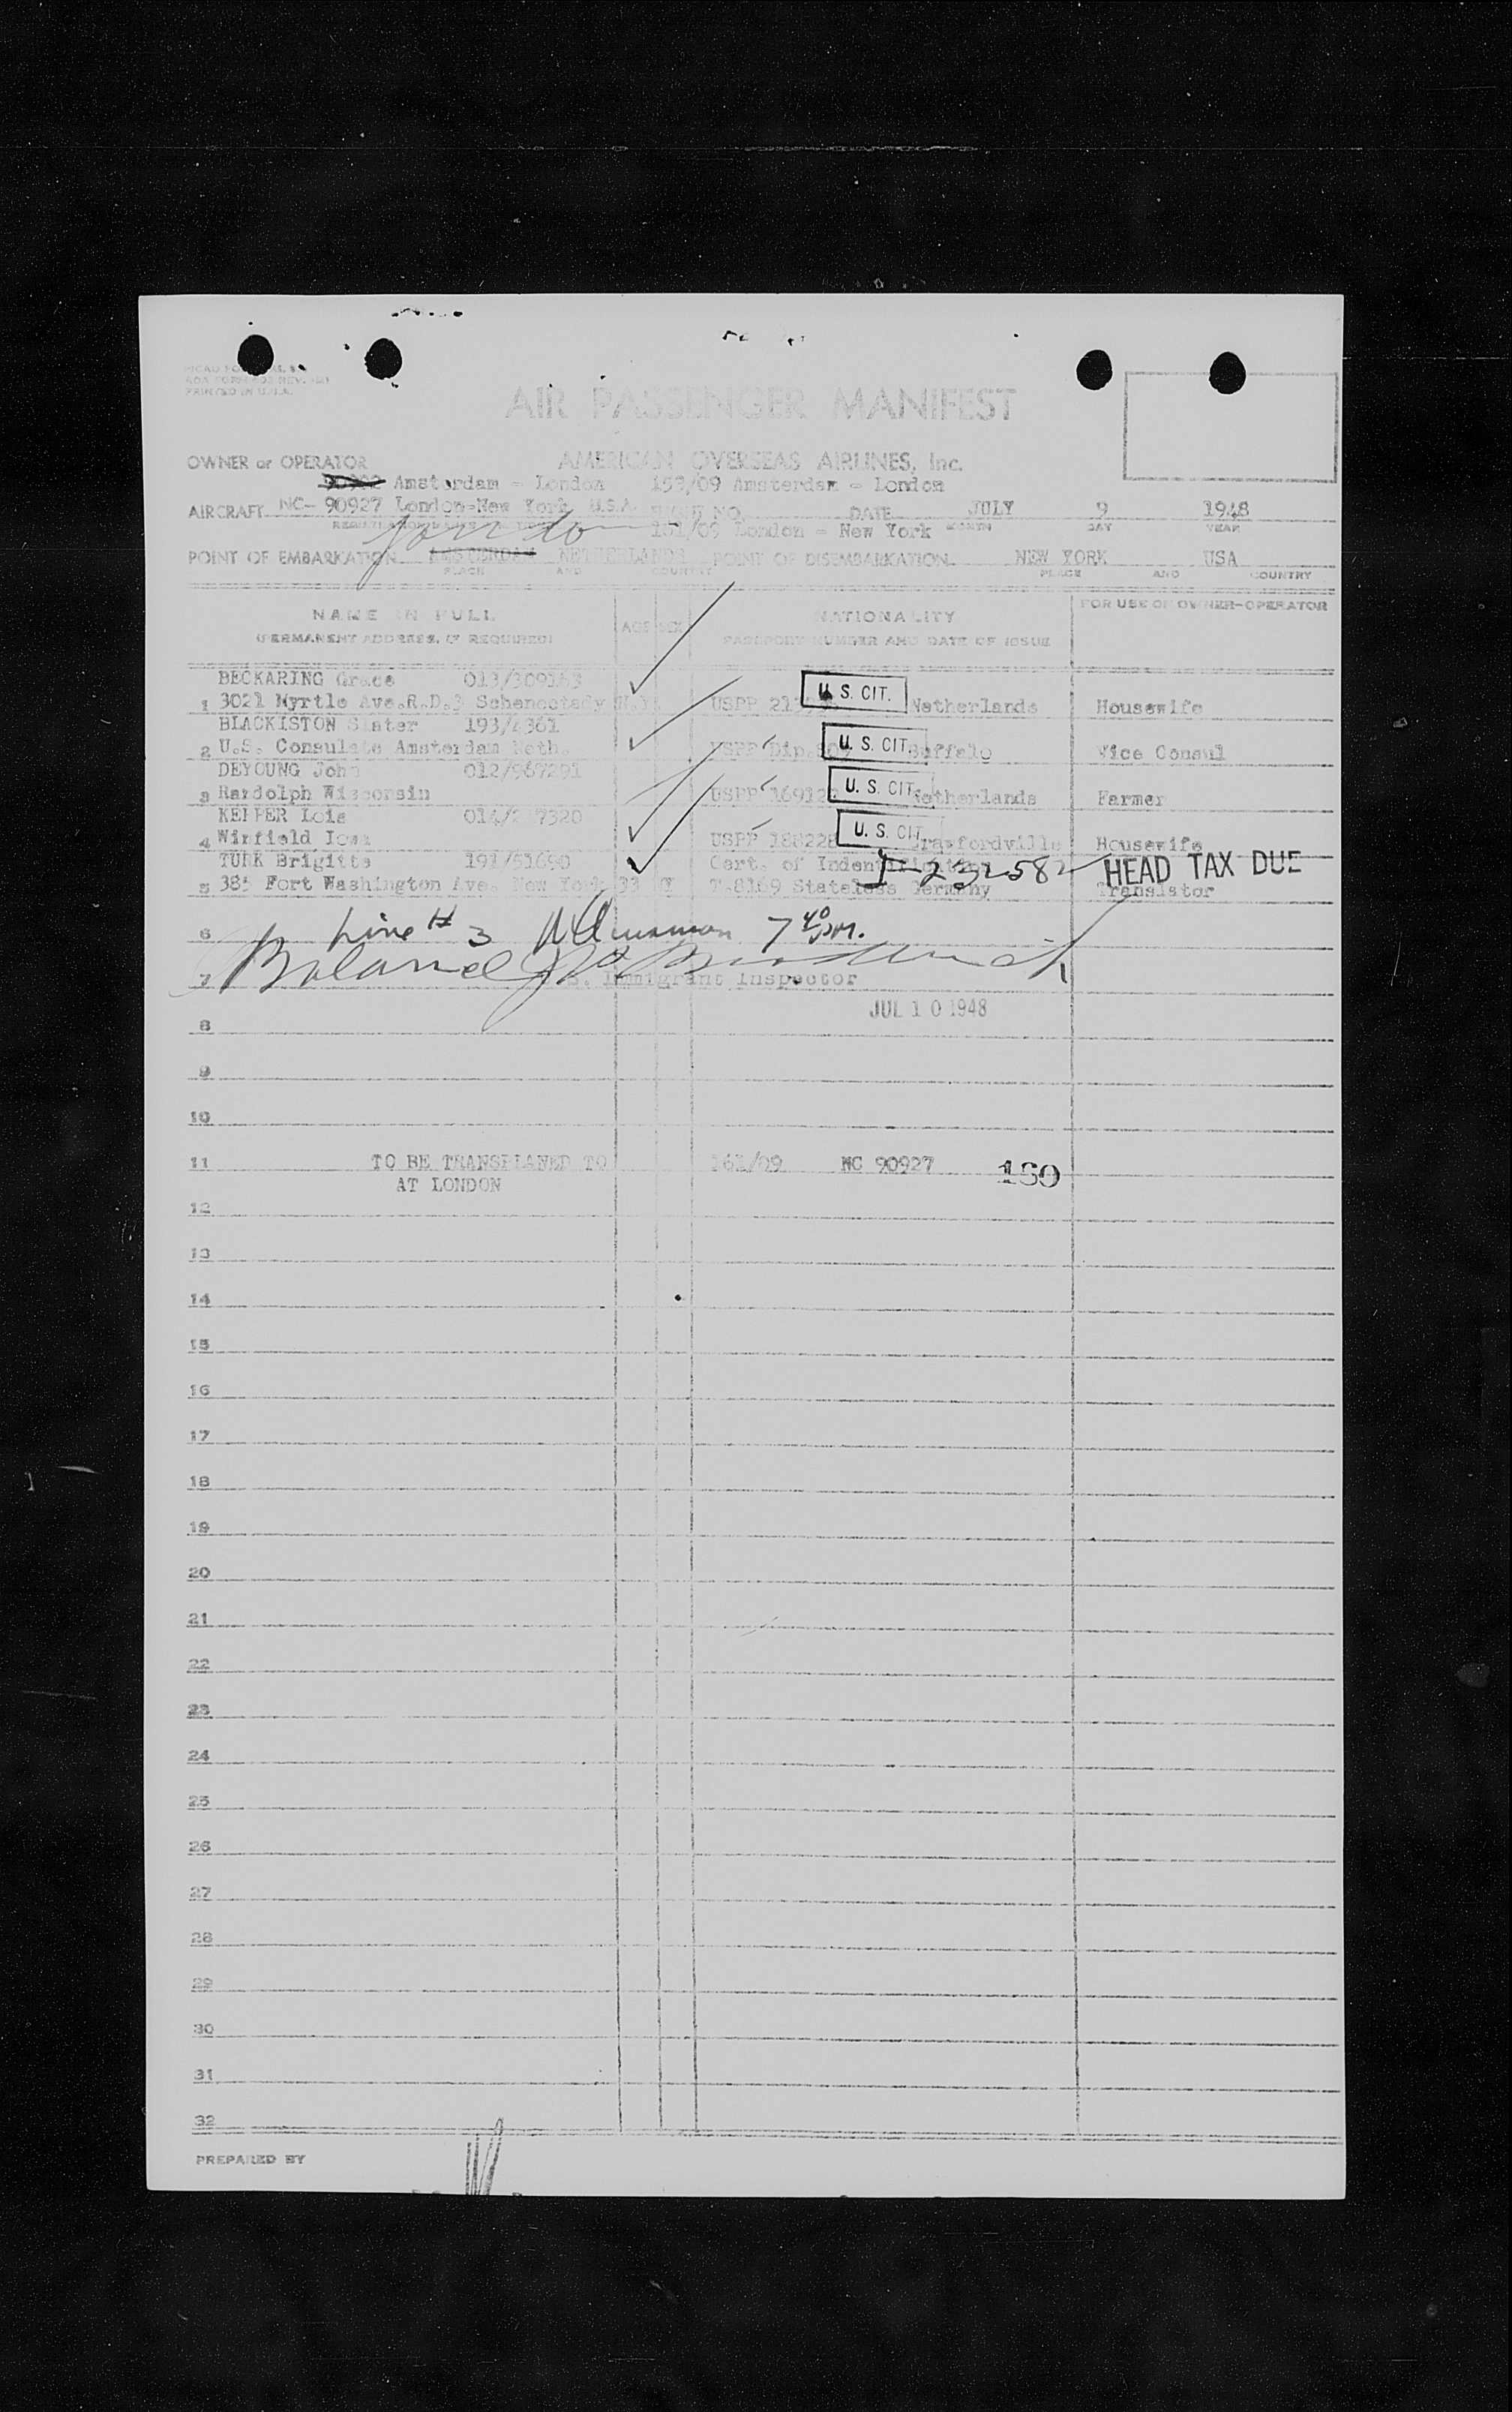 PRINTED IN U.S.A.
AIR PASSENGER MANIFEST
OWNER or OPERATOR AMERICAN OVERSEAS AIRLINES, Inc.
Amsterdam - London 153/09 Amsterdam - London
AIRCRAFT NC- 90927 London-New York U.S.A. DATE JULY 9 1948
London - New York MONTH DAY YEAR
POINT OF EMBARKATION AMSTERDAM NETHERLANDS POINT OF DISEMBARKATION NEW YORK USA
PLACE AND COUNTRY PLACE AND COUNTRY
NAME IN FULL AGE SEX NATIONALITY FOR USE OF OWNER-OPERATOR
(PERMANENT ADDRESS, IF REQUIRED) PASSPORT NUMBER AND DATE OF ISSUE
BECKARING Grace
1 3021 Myrtle Ave.R.D.3 Schenectady N.Y. USPP U. S. CIT. Netherlands Housewife
BLACKISTON Slater
2 U.S. Consulate Amsterdam Neth. USPP Dip. U. S. CIT. Buffalo Vice Consul
DEYOUNG John 012/967291
3 Randolph Wisconsin USPP U. S. CIT. Netherlands Farmer
Lois
4 Winfield Iowa USPP U. S. CIT. Crawfordville Housewife
TURK Brigitte 191/51690 Cert. of 232582 HEAD TAX DUE
5 385 Fort Washington Ave. New York 33 T.8169 Stateless Germany Translator
6 Line # 3 7 40 pm.
7 Immigrant Inspector
JUL 10 1948
8
9
10
11 TO BE TRANSPLANED TO 161/09 NC 90927 180
AT LONDON
12
13
14
15
16
17
18
19
20
21
22
23
24
25
26
27
28
29
30
31
32
PREPARED BY